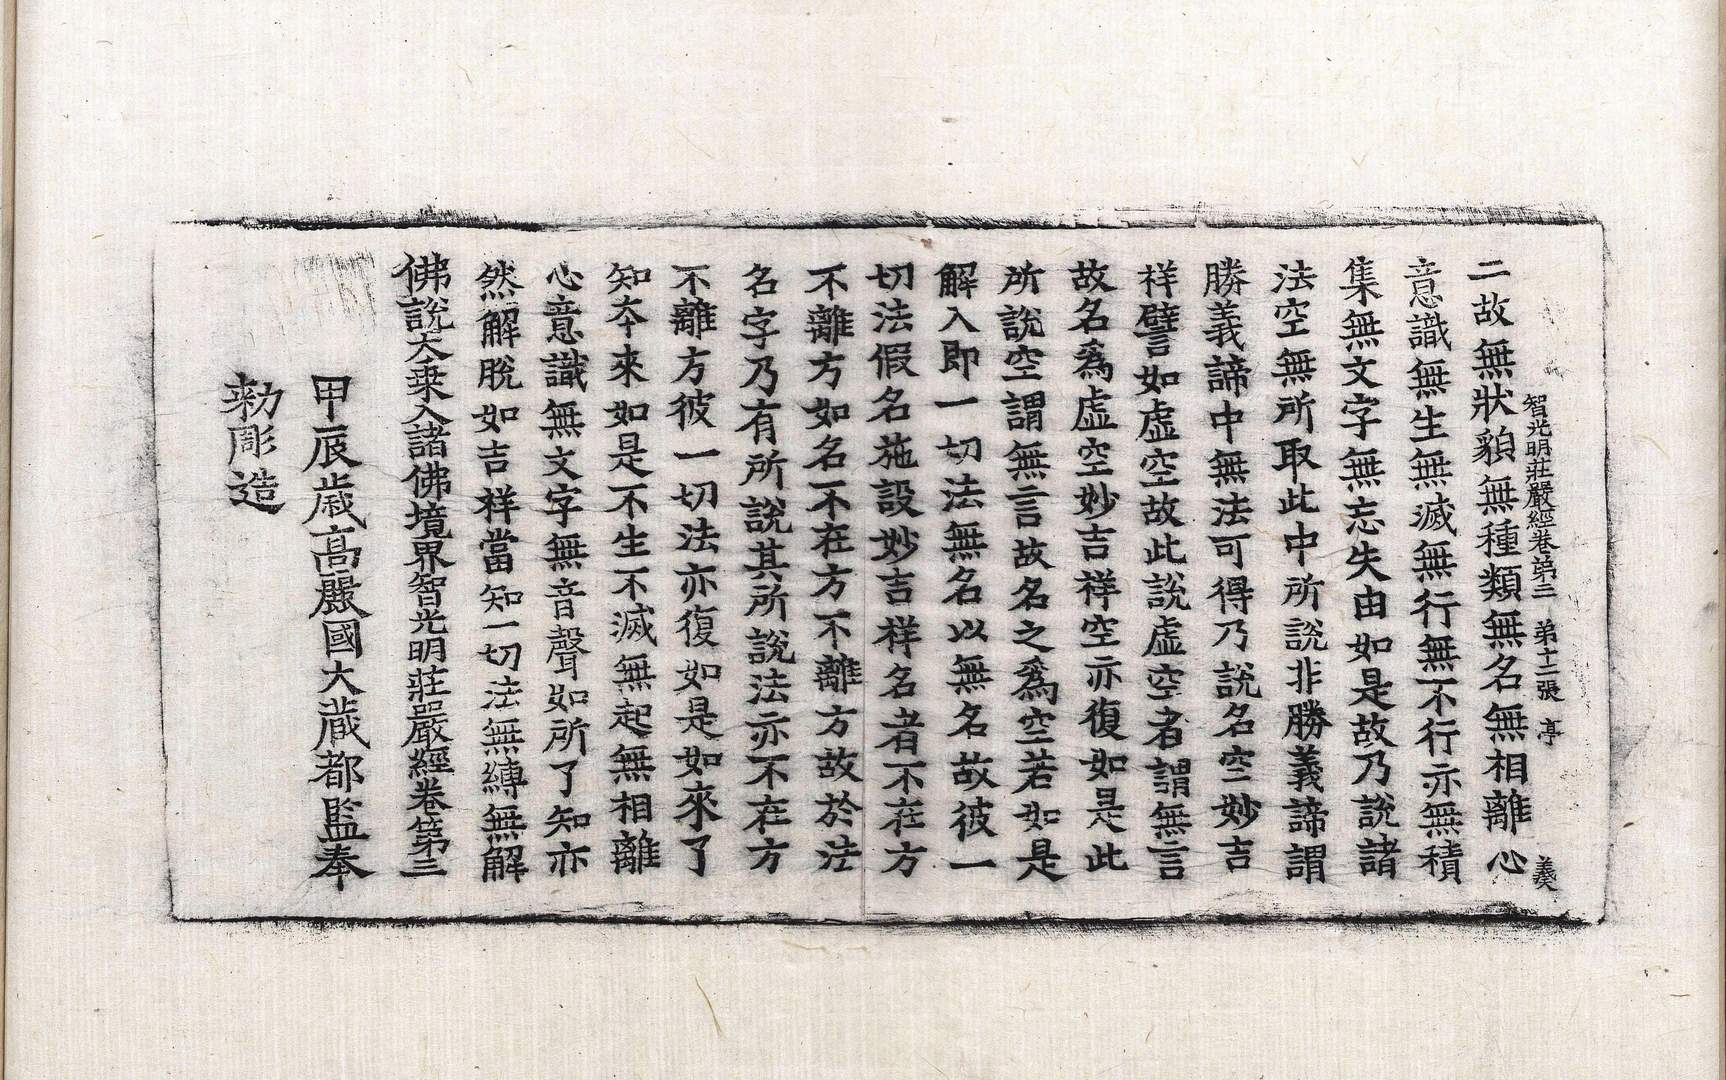 智光明莊嚴經卷第三 第十二張 亭 義
二故無狀貌無種類無名無相離心
意識無生無滅無行無不行亦無積
集無文字無忘失由如是故乃說諸
法空無所取此中所說非勝義諦謂
勝義諦中無法可得乃說名空妙吉
祥譬如虛空故此說虛空者謂無言
故名爲虛空妙吉祥空亦復如是此
所說空謂無言故名之爲空若如是
解入即一切法無名以無名故彼一
切法假名施設妙吉祥名者不在方
不離方如名不在方不離方故於法
名字乃有所說其所說法亦不在方
不離方彼一切法亦復如是如來了
知夲來如是不生不滅無起無相離
心意識無文字無音聲如所了知亦
然解脫如吉祥當知一切法無縛無解
佛說大乘入諸佛境界智光明莊嚴經卷第三
甲辰歲高麗國大藏都監奉
勑彫造